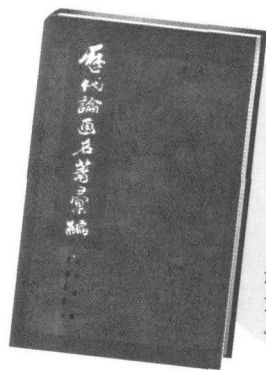 歷代論画名著彙編